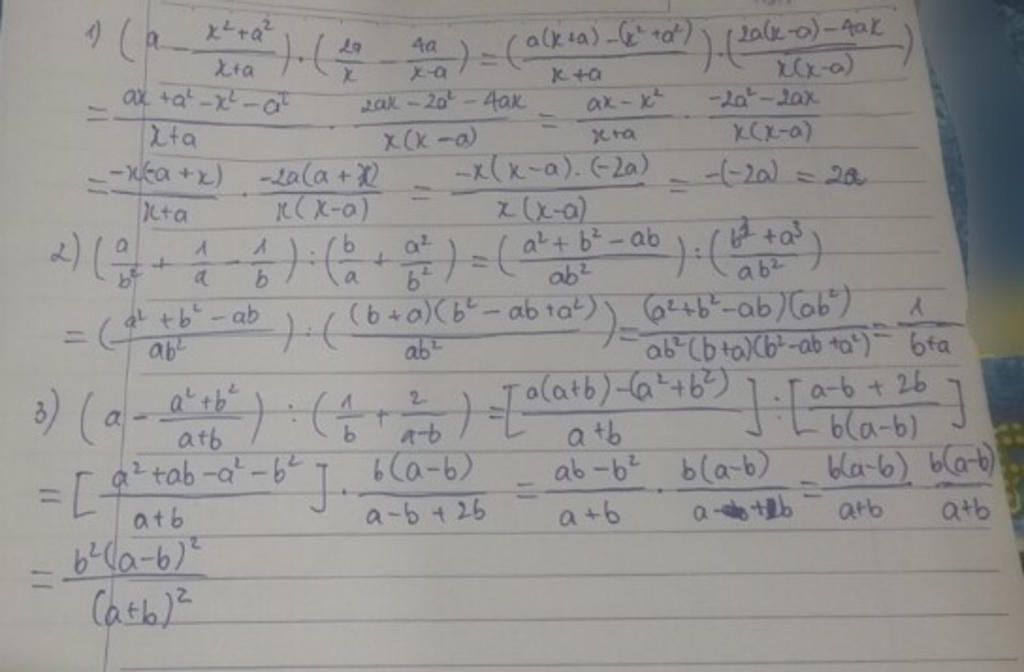 1) (a - \frac{x²+a²}{x+a}) . (\frac{2a}{x} - \frac{4a}{x-a}) = (\frac{a(x+a) - (x²+a²)}{x+a}) . (\frac{2a(x-a) - 4ax}{x(x-a)})
= \frac{ax+a²-x²-a²}{x+a} . \frac{2ax-2a²-4ax}{x(x-a)} = \frac{ax-x²}{x+a} . \frac{-2a²-2ax}{x(x-a)}
= \frac{-x(-a+x)}{x+a} . \frac{-2a(a+x)}{x(x-a)} = \frac{-x(x-a).(-2a)}{x(x-a)} = -(-2a) = 2a
2) (\frac{a}{b²} + \frac{1}{a} - \frac{1}{b}) : (\frac{b}{a} + \frac{a²}{b²}) = (\frac{a²+b²-ab}{ab²}) : (\frac{b³+a³}{ab²})
= (\frac{a²+b²-ab}{ab²}) : (\frac{(b+a)(b²-ab+a²)}{ab²}) = \frac{(a²+b²-ab)(ab²)}{ab²(b+a)(b²-ab+a²)} = \frac{1}{b+a}
3) (a - \frac{a²+b²}{a+b}) : (\frac{1}{b} + \frac{2}{a-b}) = [\frac{a(a+b)-(a²+b²)}{a+b}] : [\frac{a-b+2b}{b(a-b)}]
= [\frac{a²+ab-a²-b²}{a+b}] . \frac{b(a-b)}{a-b+2b} = \frac{ab-b²}{a+b} . \frac{b(a-b)}{a-b+2b} = \frac{b(a-b)}{a+b} \frac{b(a-b)}{a+b}
= \frac{b²(a-b)²}{(a+b)²}